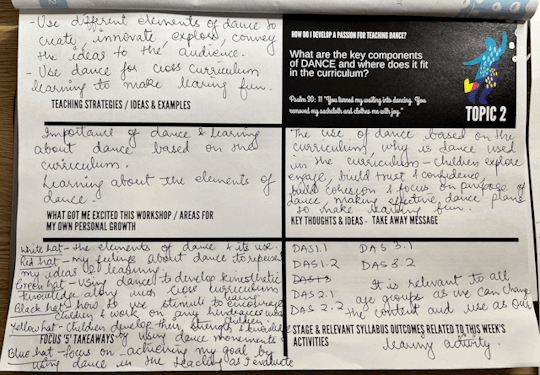 - Use different elements of dance to
create, innovate explore, convey
the ideas to the audience.
- Use dance for cross curriculum
learning to make learing fun.
TEACHING STRATEGIES / IDEAS & EXAMPLES
HOW DO I DEVELOP A PASSION FOR TEACHING DANCE?
What are the key components
of DANCE and where does it fit
in the curriculum?
Psalm 30: 11 "You turned my wailing into dancing. You
removed my sackcloth and clothes me with joy."
TOPIC 2
Importance of dance & learning
about dance based on the
curriculum.
Learning about the elements of
dance.
WHAT GOT ME EXCITED THIS WORKSHOP / AREAS FOR
MY OWN PERSONAL GROWTH
The use of dance based on the
curriculum, why is dance used
in the curriculum - children explore
engage, build trust & confidence,
build cohesion & focus, on purpose of
dance, making effective dance plans
to make learning fun.
KEY THOUGHTS & IDEAS - TAKE AWAY MESSAGE
White hat - the elements of dance & its use.
Red hat - my feelings about dance to
my ideas of learning.
Green hat - using dance to develop kinesthetic
knowledge along with cross curriculum
learning
Black hat - how to use stimuli to encourage
children & work on any hindrances
Yellow hat - children develop their strength &
FOCUS '5' TAKEAWAYS by using dance movements
Blue hat - focus on achieving my goal by
using dance in the teaching as I evaluate
DAS1.1 DAS 3.1
DAS1.2 DAS 3.2
DAS1.3
DAS2.1 It is relevant to all
DAS 2.2 age groups as we can change
the content and use as our
STAGE & RELEVANT SYLLABUS OUTCOMES RELATED TO THIS WEEK'S
ACTIVITIES
learning activity.